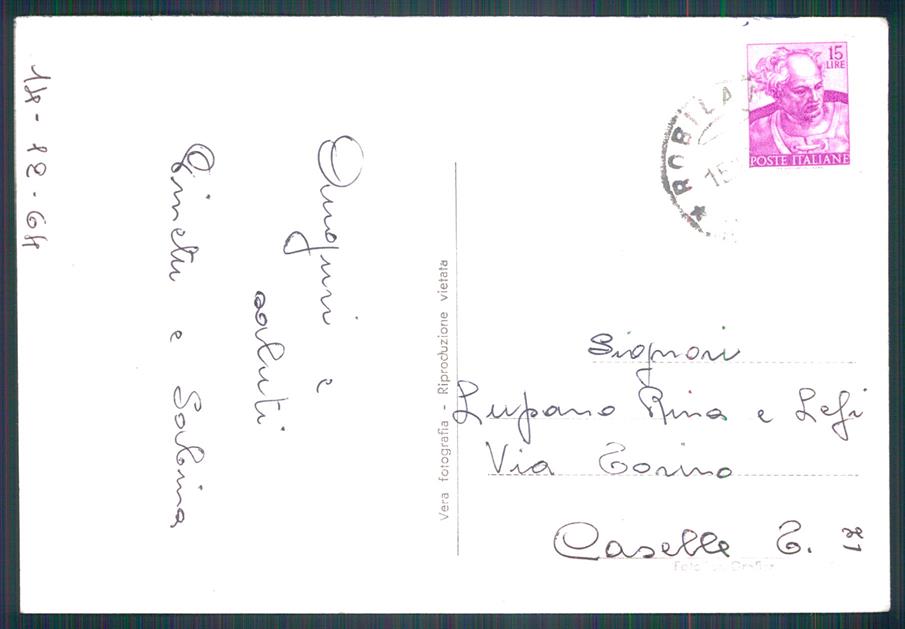 14-12-64
Auguri e
saluti
e Sabina
Vera fotografia - Riproduzione vietata
15
LIRE
POSTE ITALIANE
★ ROBILA
15
Signori
Lupano Rina e
Via Torino
Caselle T.